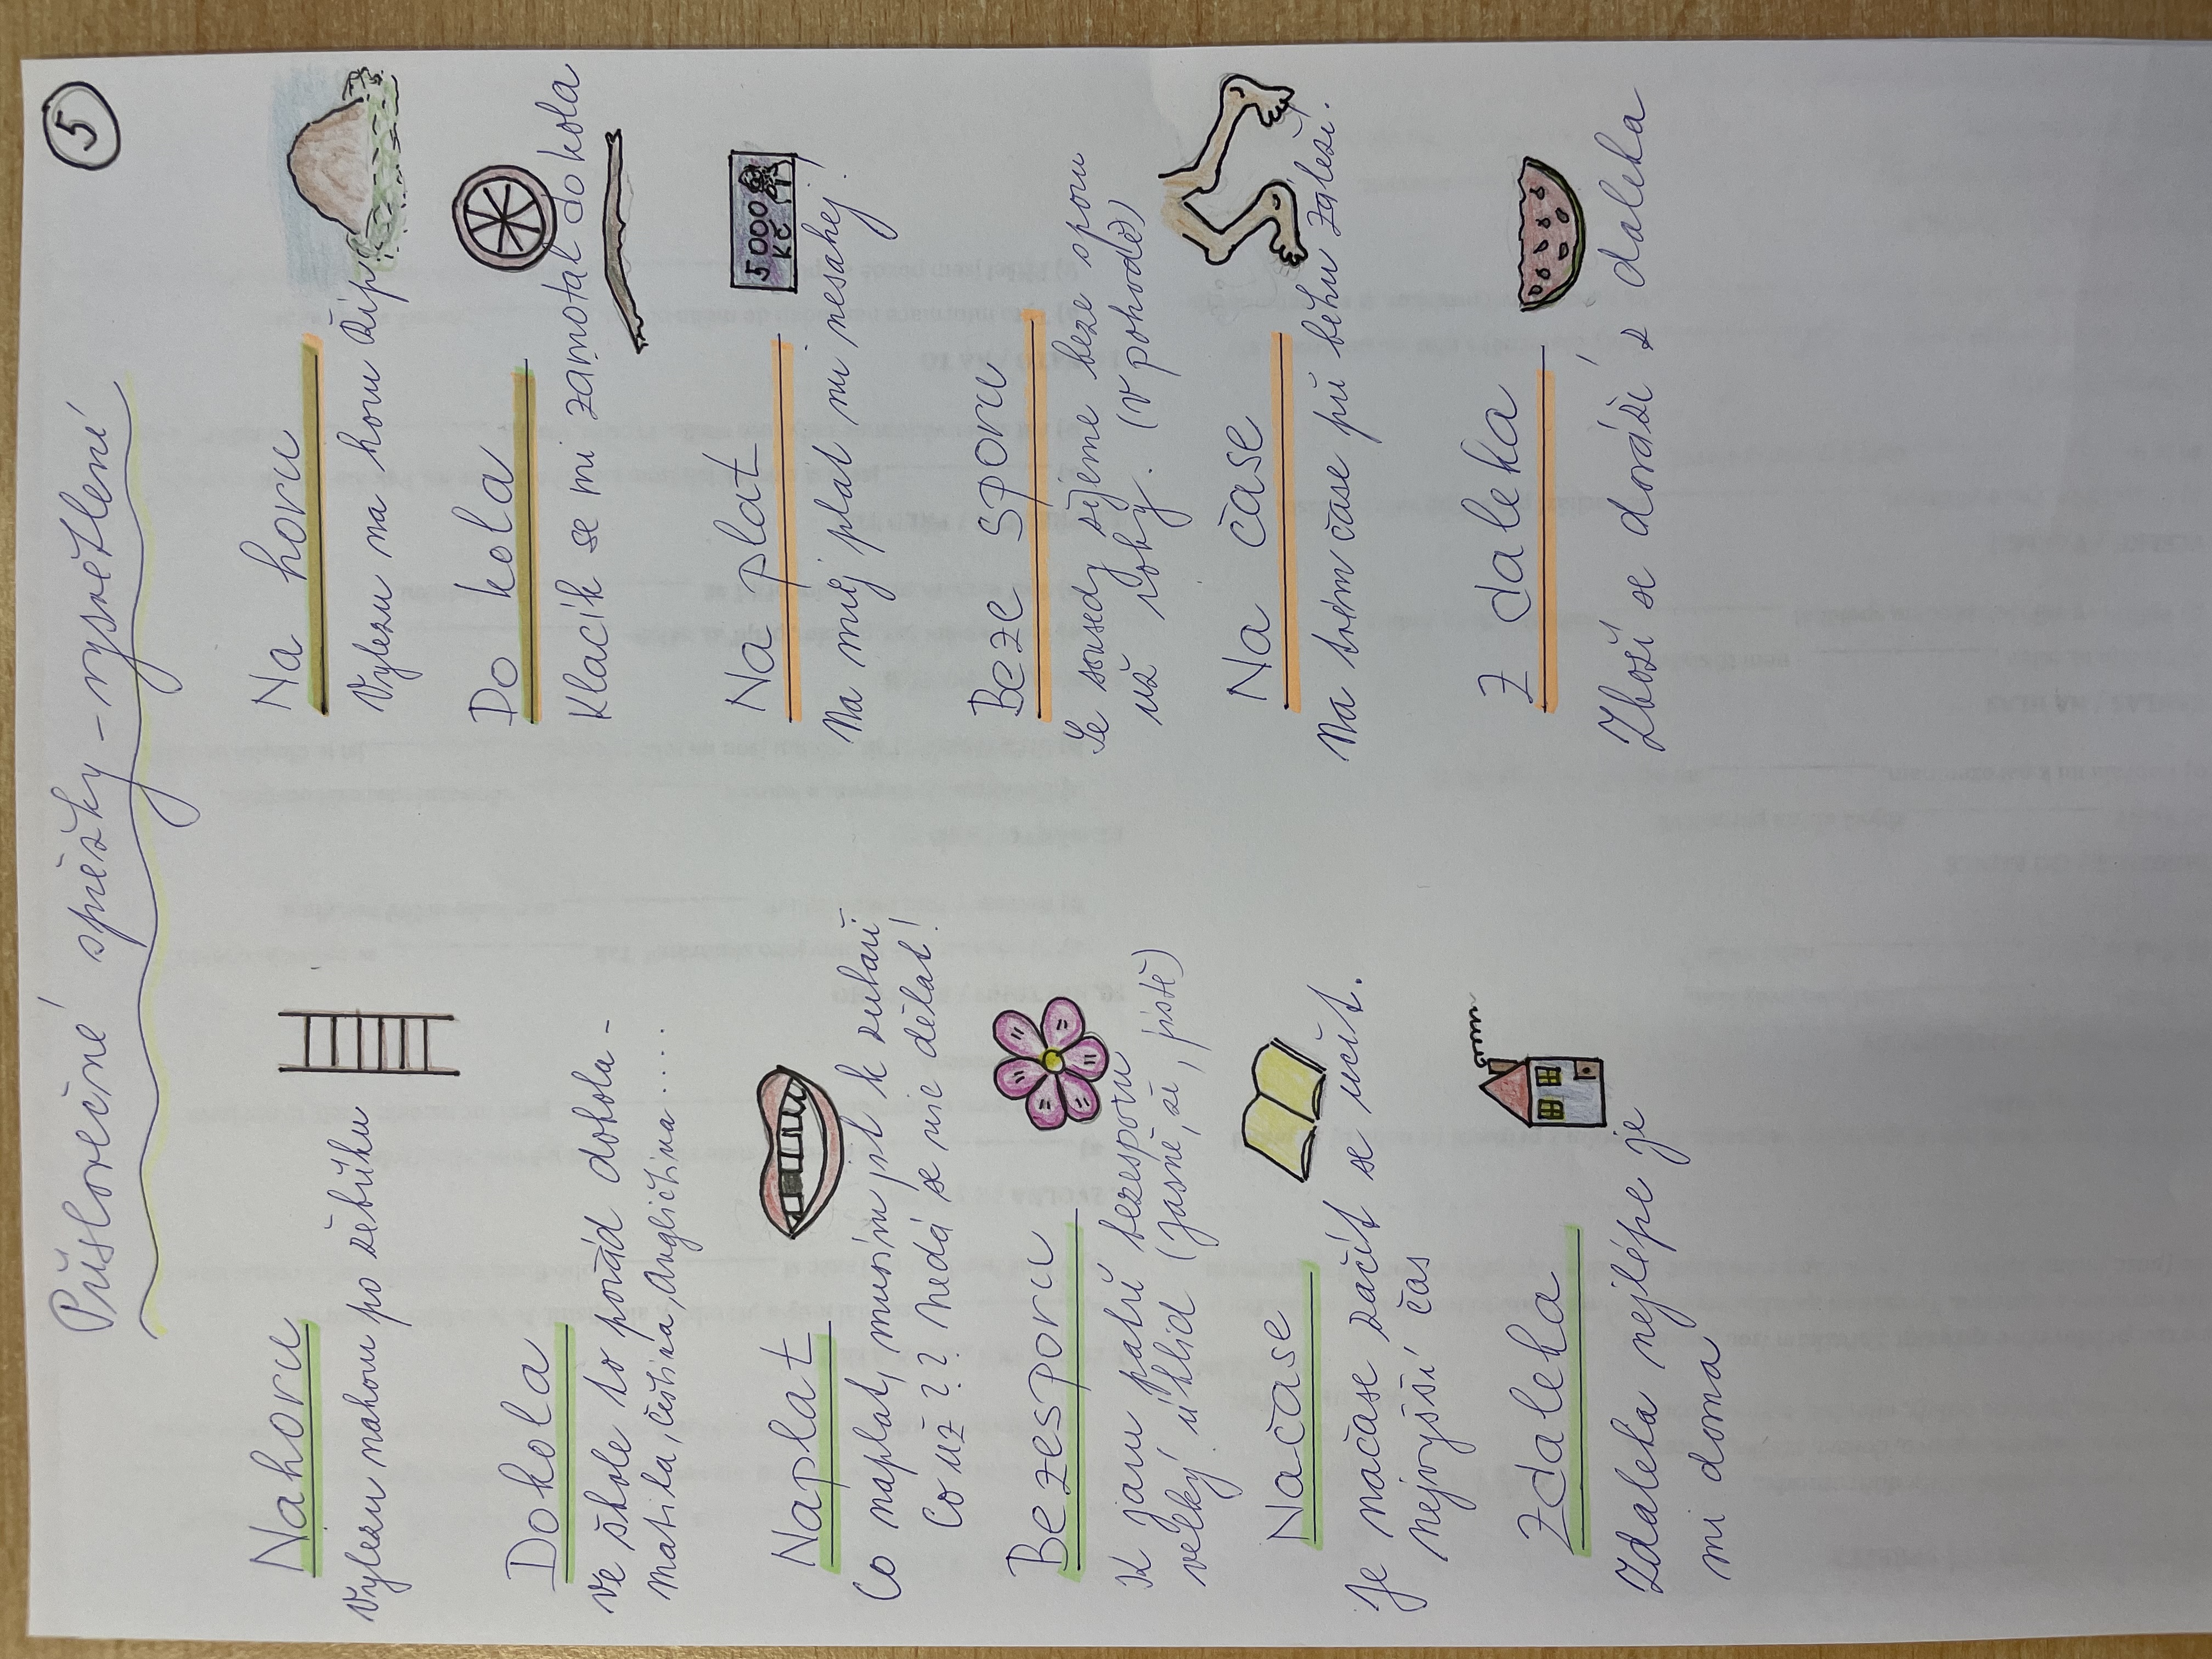 5
Příslovečné spřežky - vysvětlení
Nahoru
Vylezu nahoru po žebříku
Dokola
Ve škole to pořád dokola -
matika, čeština, angličtina....
Naplat
Co naplat, musím jít k zubaři.
Co už ?? Nedá se nic dělat!
Bezesporu
K jaru patří bezesporu
velký úklid (jasně, že, jistě)
Načase
Je načase začít se učit.
nejvyšší čas
Zdaleka
Zdaleka nejlépe je
mi doma
Na horu
Vylezu na horu Říp
Do kola
Klacík se mi zamotal do kola
Na plat
Na můj plat mi nesahej!
5000
KČ
Beze sporu
Se sousedy žijeme beze sporu
už roky. (v pohodě)
Na čase
Na tvém čase při běhu záleží.
Z daleka
Zboží se dováží z daleka